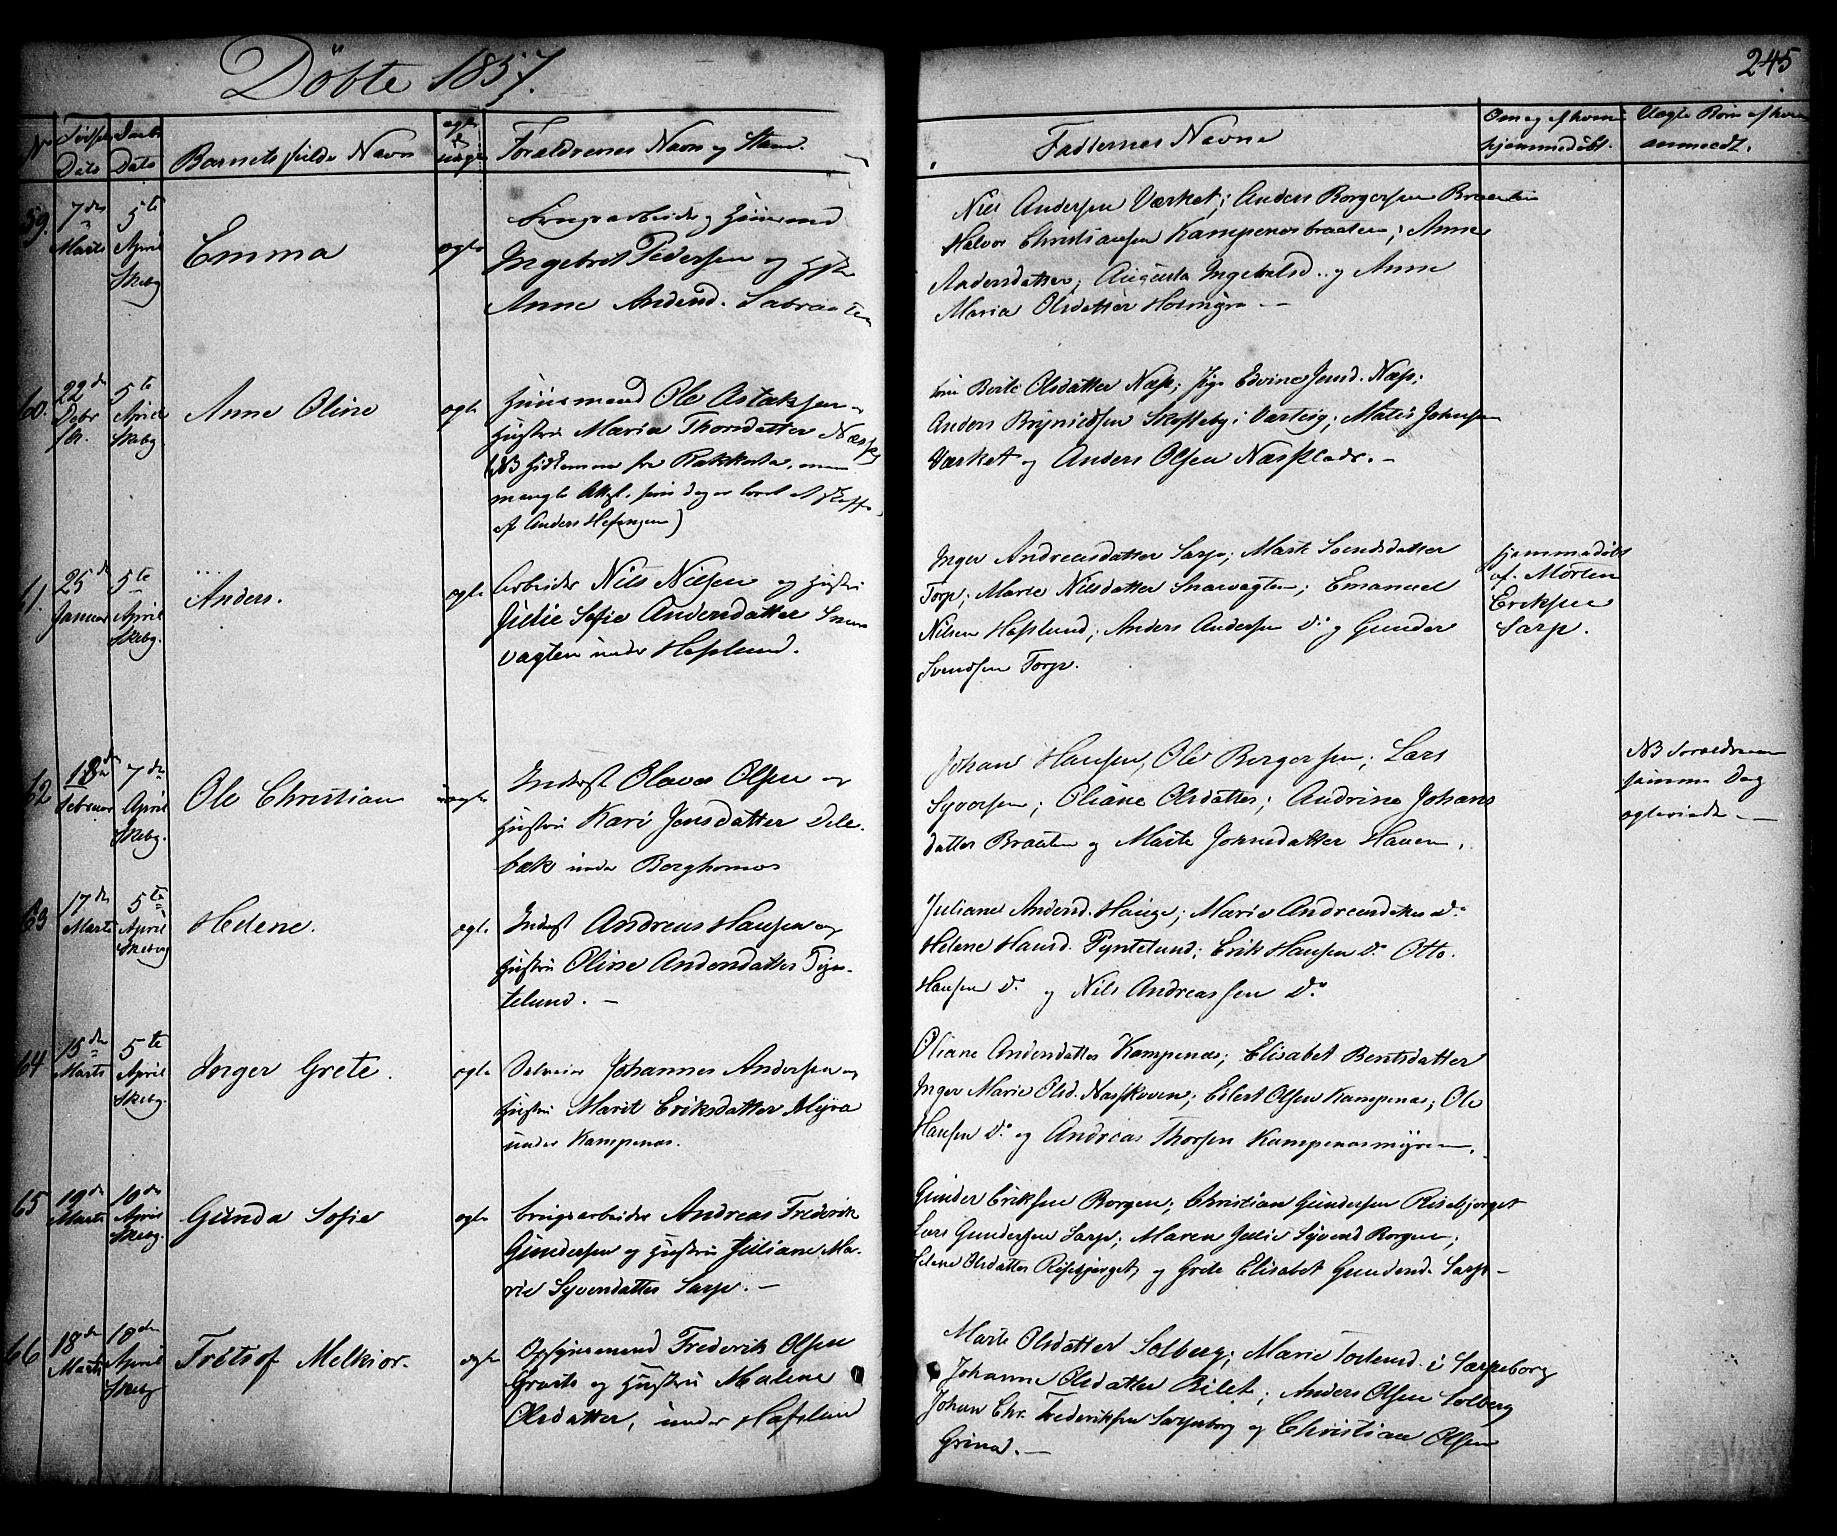 Döbte 1857.
245
No
Fødsels Dato
Daabs Dato
Barnets fulde Navn
ægte el uægte
Forældrenes Navn og Stand
Faddernes Navne
Om og af hvem hjemmedøbt.
Uægte Børn af hvem anmeldt.
59.
7de Marts
5te April Skebg
Emma
ægte
Brugsarbeider og Huusmand
Ingebret Pedersen og Hstr
Anne Andersd. Labraaten
Niels Andersen Værket; Anders Borgersen Braaten
Halvor Christiansen Kampenesbraaten; Anne
Andersdatter; Augusta Ingebretsd. og Anne
Maria Olsdatter Holmgra —
60.
22de Debr
5te April Skebg
Anne Oline
ægte
Huusmand Ole Aslaksen og
Hustru Maria Thorsdatter Næss
(NB hidkomne fra Rakkestad, men
mangle Attest, som dog er lovet
af Anders Hefsengen)
Berte Olsdatter Næss; Pige Edvine Jensd. Næss;
Anders Brynildsen Skofteby i Varteig; Mathis Johnsen
Værket og Anders Olsen Næss Plads. —
61.
25de Januar
5te April Skebg.
Anders.
ægte
Arbeider Nils Nielsen og Hustru
Julie Sofie Andersdatter Snare
vagten under Hafslund.
Inger Andreasdatter Sarp; Marte Svendsdatter
Torp; Marie Nilsdatter Snarevagten; Emanuel
Nilsen Hafslund; Anders Andersen Do og Gunder
Svendsen Torp.
hjemmedøbt
af Morten
Eriksen
Sarp.
62
18de Februar
7de April Skebg.
Ole Christian
uægte
Inderst Olavus Olsen og
Hustru Kari Jensdatter Dele-
bæk under Borghornæs
Johan Hansen, Ole Borgersen; Lars
Syversen; Oliane Olsdatter; Andrine Johans
datter Braaten og Marte Johnsdatter Hauen.
NB Forældrene
samme Dag
ægteviede —
63
17de Marts
5te April Skebg
Helene.
ægte
Inderst Andreas Hansen og
Hustru Oline Andersdatter Tyn-
telund. —
Juliane Andersd. Hauge; Marie Andreasdatter Do
Helene Hansd. Tyntelund; Erik Hansen Do Otto
Hansen Do og Nils Andreassen Do
64
15de Marts
5te April Skebg.
Inger Grete.
ægte
Selveier Johannes Andersen og
Hustru Marit Eriksdatter Myra
under Kampenæs.
Oliane Andersdatter Kampenæs; Elisabet Berntsdatter
Inger Marie Olsd. Næsskoven; Eilert Olsen Kampenæs; Ole
Hansen Do og Andreas Thorsen Kampenæsmyren.
65
19de Marts
10de April Skebg.
Gunda Sofie
ægte
Brugsarbeider Andreas Frederik
Gundersen og Hustru Juliane Ma-
rie Syversdatter Sarp. —
Gunder Eriksen Borgen; Christian Gundersen Risebjerget
Lars Gundersen Sarp; Maren Julie Syversd. Borgen;
Helene Olsdatter Risebjerget, og Grete Elisabet Gundersd. Sarp —
66
18de Marts
10de April Skebg
Fritsof Melkior.
ægte
Opsynsmand Frederik Olsen
og Hustru Malene
Olsdatter, under Hafslund
Marte Olsdatter Solberg; Marie i Sarpsborg
Johanne Olsdatter Bilet; Anders Olsen Solberg
Johan Chr. Frederiksen Sarpsborg og Christian Olsen
Grina. —